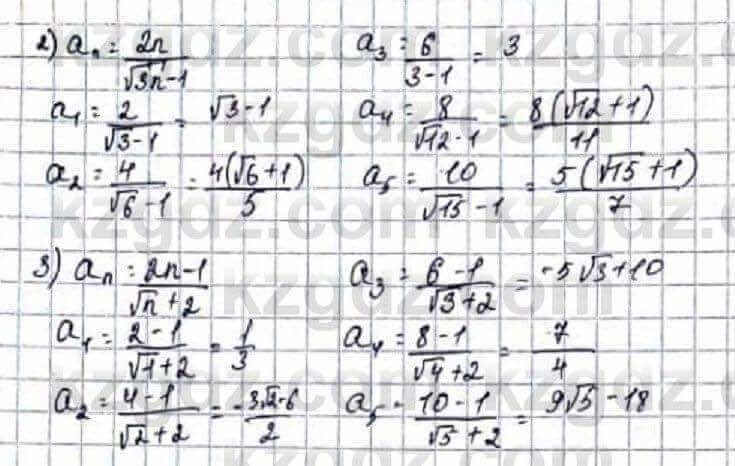 2) aₙ = 2n/(√3n-1)   a₃ = 6/(3-1) = 3
a₁ = 2/(√3-1) = √3-1   a₄ = 8/(√12-1) = 8(√12+1)/11
a₂ = 4/(√6-1) = 4(√6+1)/5   a₅ = 10/(√15-1) = 5(√15+1)/7
3) aₙ = 2n-1/(√n+2)   a₃ = 6-1/(√3+2) = -5√3+10
a₁ = 2-1/(√1+2) = 1/3   a₄ = 8-1/(√4+2) = 7/4
a₂ = 4-1/(√2+2) = -3√2-6/2   a₅ - 10-1/(√5+2) = 9√5-18
kzgdz.com